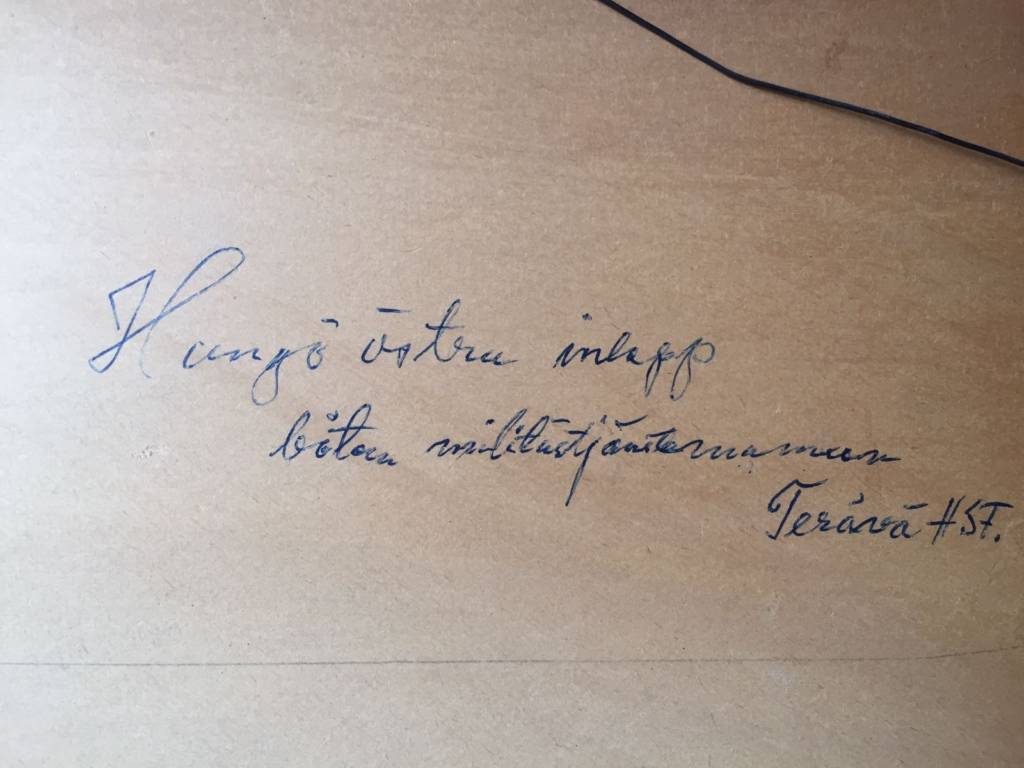 Hangö östra inlopp
båtan militärtjänstemannen
Terävä HSF.